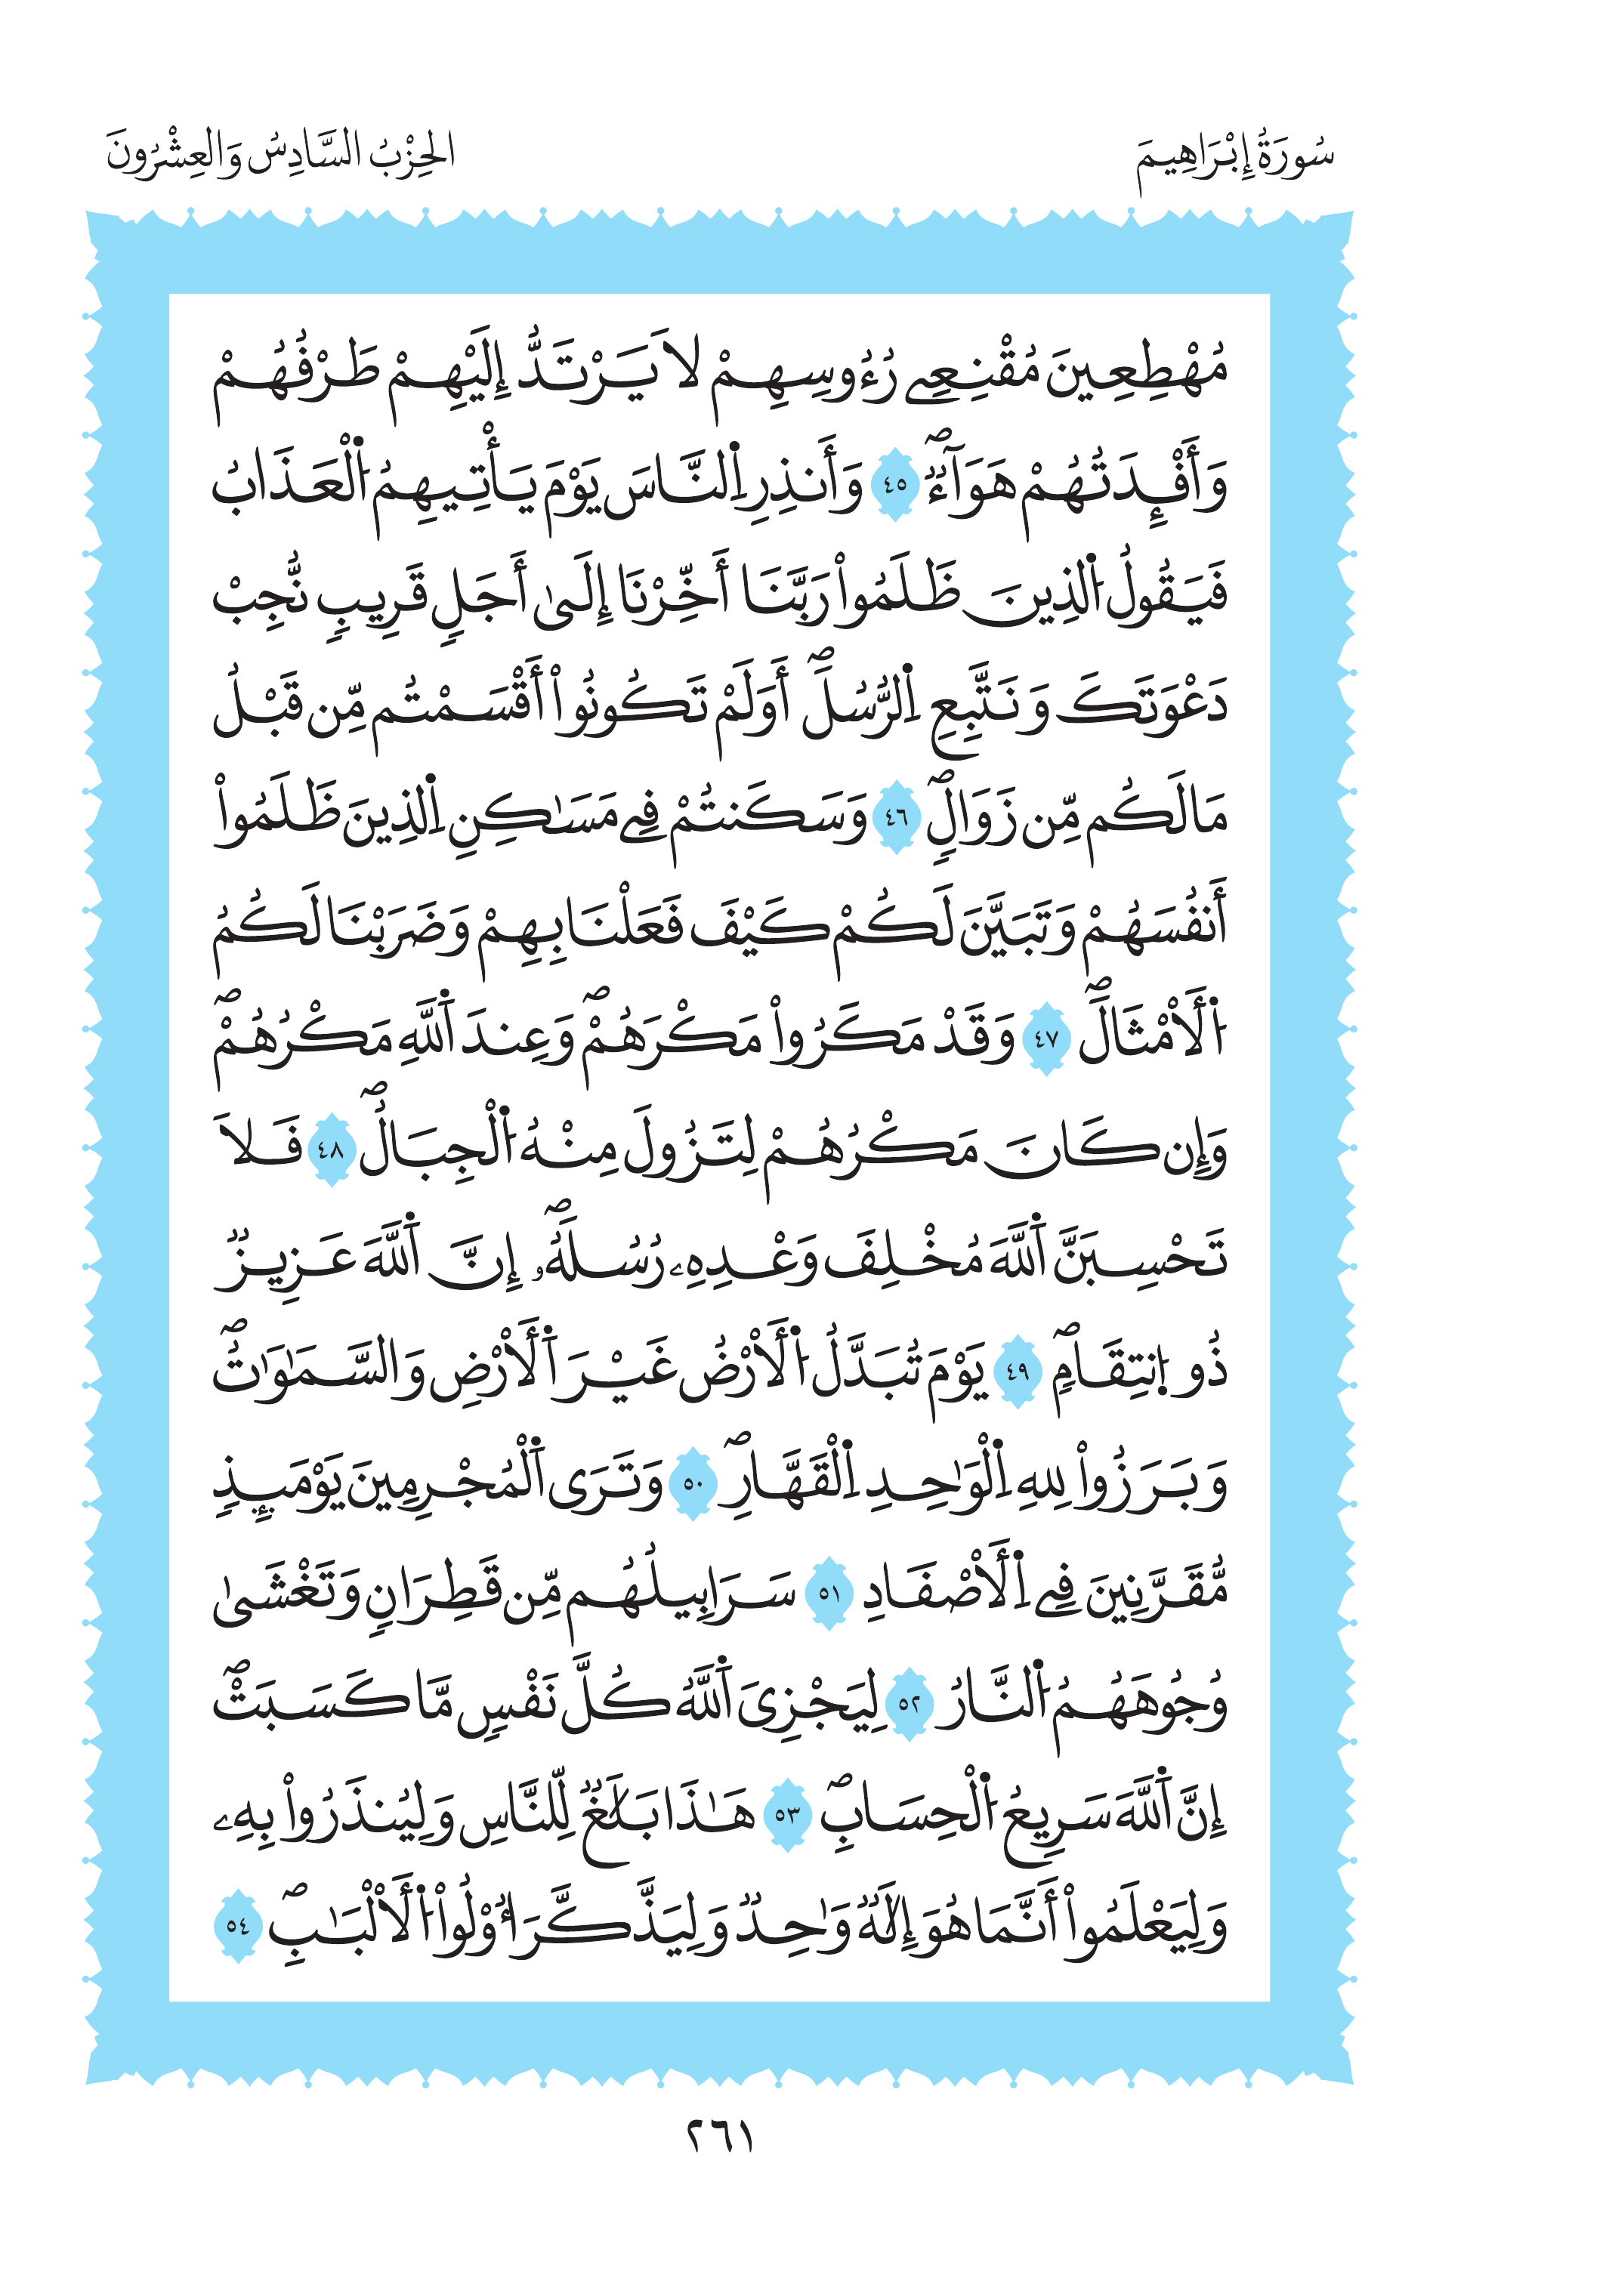 سُورَةُ إِبْرَاهِيمَ
الحِزْبُ السَّادِسُ وَالعِشْرُونَ
مُهْطِعِينَ مُقْنِعِے رُءُوسِهِمْ لَا يَرْتَدُّ إِلَيْهِمْ طَرْفُهُمْ
وَأَفْـِٕدَتُهُمْ هَوَآءٌۖ ٤٥ وَأَنذِرِ اِ۬لنَّاسَ يَوْمَ يَأْتِيهِمُ اُ۬لْعَذَابُ
فَيَقُولُ اُ۬لذِينَ ظَلَمُواْ رَبَّنَا أَخِّرْنَا إِلَىٰ أَجَلٖ قَرِيبٖ نُّجِبْ
دَعْوَتَكَ وَنَتَّبِعِ اِ۬لرُّسُلَۖ أَوَلَمْ تَكُونُواْ أَقْسَمْتُم مِّن قَبْلُ
مَا لَكُم مِّن زَوَالٖۖ ٤٦ وَسَكَنتُمْ فِے مَسَٰكِنِ اِ۬لذِينَ ظَلَمُواْ
أَنفُسَهُمْ وَتَبَيَّنَ لَكُمْ كَيْفَ فَعَلْنَا بِهِمْ وَضَرَبْنَا لَكُمُ
اُ۬لَامْثَالَۖ ٤٧ وَقَدْ مَكَرُواْ مَكْرَهُمْۖ وَعِندَ اَ۬للَّهِ مَكْرُهُمْۖ
وَإِن كَانَ مَكْرُهُمْ لِتَزُولَ مِنْهُ اُ۬لْجِبَالُۖ ٤٨ فَلَا
تَحْسِبَنَّ اَ۬للَّهَ مُخْلِفَ وَعْدِهِۦ رُسُلَهُۥۖ إِنَّ اَ۬للَّهَ عَزِيزٞ
ذُو اِ۪نتِقَامٖۖ ٤٩ يَوْمَ تُبَدَّلُ اُ۬لَأَرْضُ غَيْرَ اَ۬لَأَرْضِ وَالسَّمَٰوَٰتُۖ
وَبَرَزُواْ لِلهِ اِ۬لْوَٰحِدِ اِ۬لْقَهَّارِۖ ٥٠ وَتَرَى اَ۬لْمُجْرِمِينَ يَوْمَئِذٖ
مُّقَرَّنِينَ فِے اِ۬لَأَصْفَادِ ٥١ سَرَابِيلُهُم مِّن قَطِرَانٖ وَتَغْشَىٰ
وُجُوهَهُمُ اُ۬لنَّارُ ٥٢ لِيَجْزِىَ اَ۬للَّهُ كُلَّ نَفْسٖ مَّا كَسَبَتْۖ
إِنَّ اَ۬للَّهَ سَرِيعُ اُ۬لْحِسَابِۖ ٥٣ هَٰذَا بَلَٰغٞ لِّلنَّاسِ وَلِيُنذَرُواْ بِهِۦ
وَلِيَعْلَمُواْ أَنَّمَا هُوَ إِلَٰهٞ وَٰحِدٞ وَلِيَذَّكَّرَ أُوْلُواْ اُ۬لَأَلْبَٰبِۖ ٥٤
٢٦١